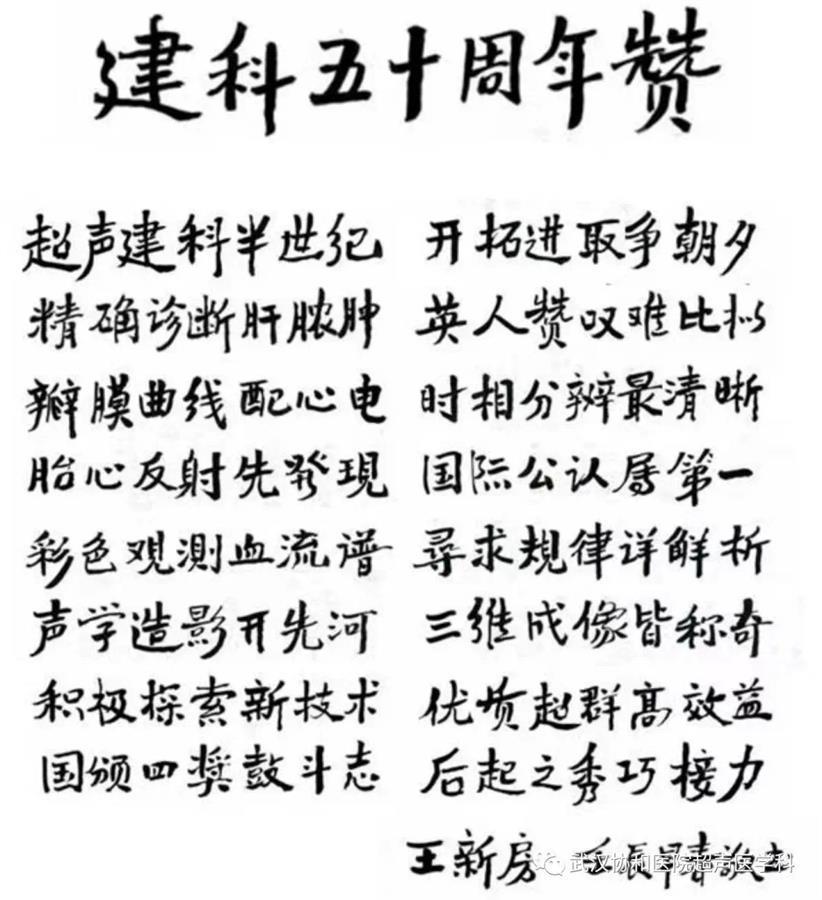 建科五十周年赞
超声建科半世纪 开拓进取争朝夕
精确诊断肝脓肿 英人赞叹难比拟
瓣膜曲线配心电 时相分辨最清晰
胎心反射先發現 国际公认属第一
彩色观测血流谱 尋求規律详鲜析
声学造影开先河 三维成像皆称奇
积极探索新技术 优质超群高效益
国颁四奖鼓斗志 后起之秀巧接力
王新房 壬辰早春
武汉协和医院超声医学科